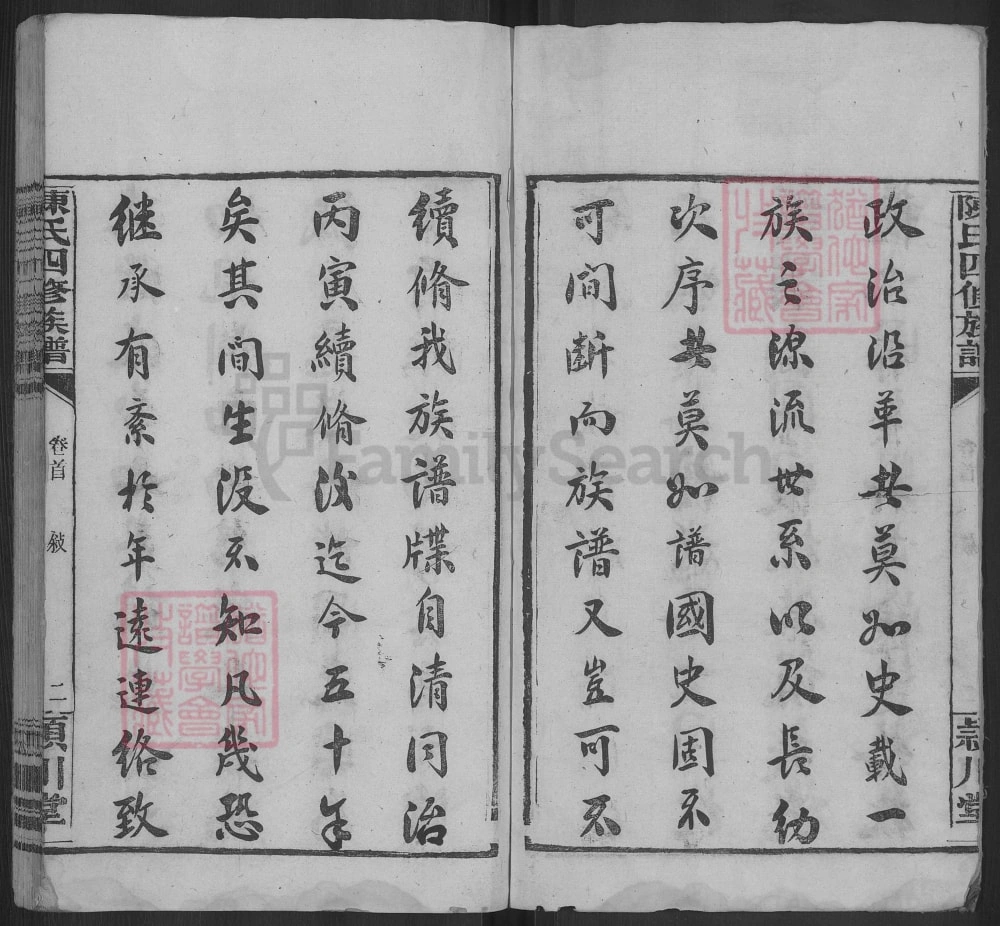 政治沿革其莫如史載一
族之源流世系以及長幼
次序其莫如譜國史固不
可間斷而族譜又豈可不
續脩我族譜牒自清同治
丙寅續脩後迄今五十年
矣其間生没不知凡幾恐
继承有紊於年遠連絡致
陳氏四修族譜
卷首
敍
二
潁川堂
FamilySearch